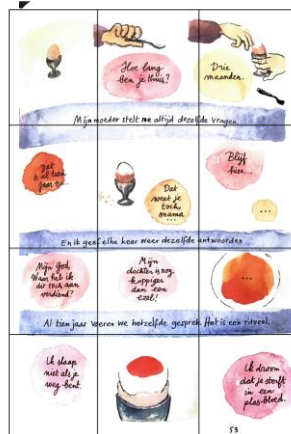 Hoe lang
ben je thuis?
Drie
maanden.
Mijn moeder stelt me altijd dezelfde vragen.
Dat
al tien
jaar zo...
Dat
weet je
toch,
mama...
Blijf
hier...
...
En ik geef elke keer weer dezelfde antwoorden
Mijn God,
Waar heb ik
dit toch aan
verdiend?
Mijn
dochter is nog
koppiger
dan een
ezel!
...
Al tien jaar voeren we hetzelfde gesprek. Het is een ritueel.
Ik slaap
niet als je
weg bent.
Ik droom
dat je sterft
in een
plas bloed.
53